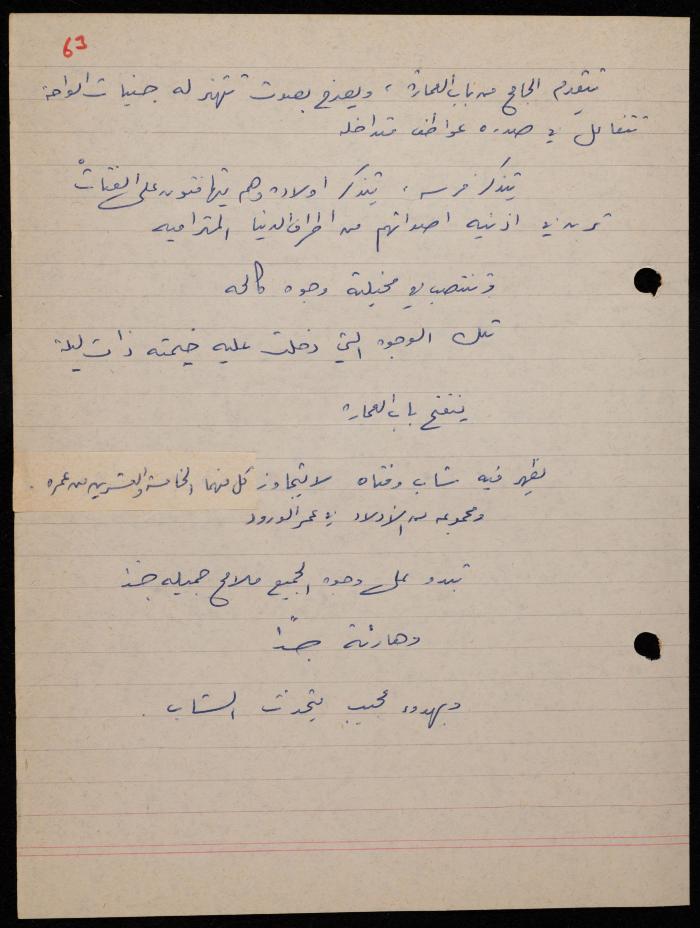 63
يتقدم الجامح من باب العمارة ، ويصرخ بصوت تهتز له جنبات الواحة
تتفاعل في صدره عواطف متداخله
يتذكر فرسه ، يتذكر اولاده وهم يتهافتون على الفتات
ترن في اذنيه اصواتهم من اطراف الدنيا المتراميه
وتنتصب في مخيلته وجوه كالحه
تلك الوجوه التي دخلت عليه خيمته ذات ليلة
ينفتح باب العمارة
يظهر فيه شاب وفتاه لا يتجاوز كل منهما الخامسة والعشرين من عمره .
ومجموعه من الاولاد في عمر الورود
تبدو على وجوه الجميع ملامح جميله جداً
وهادئة جداً
وبهدوء عجيب يتحدث الشاب .